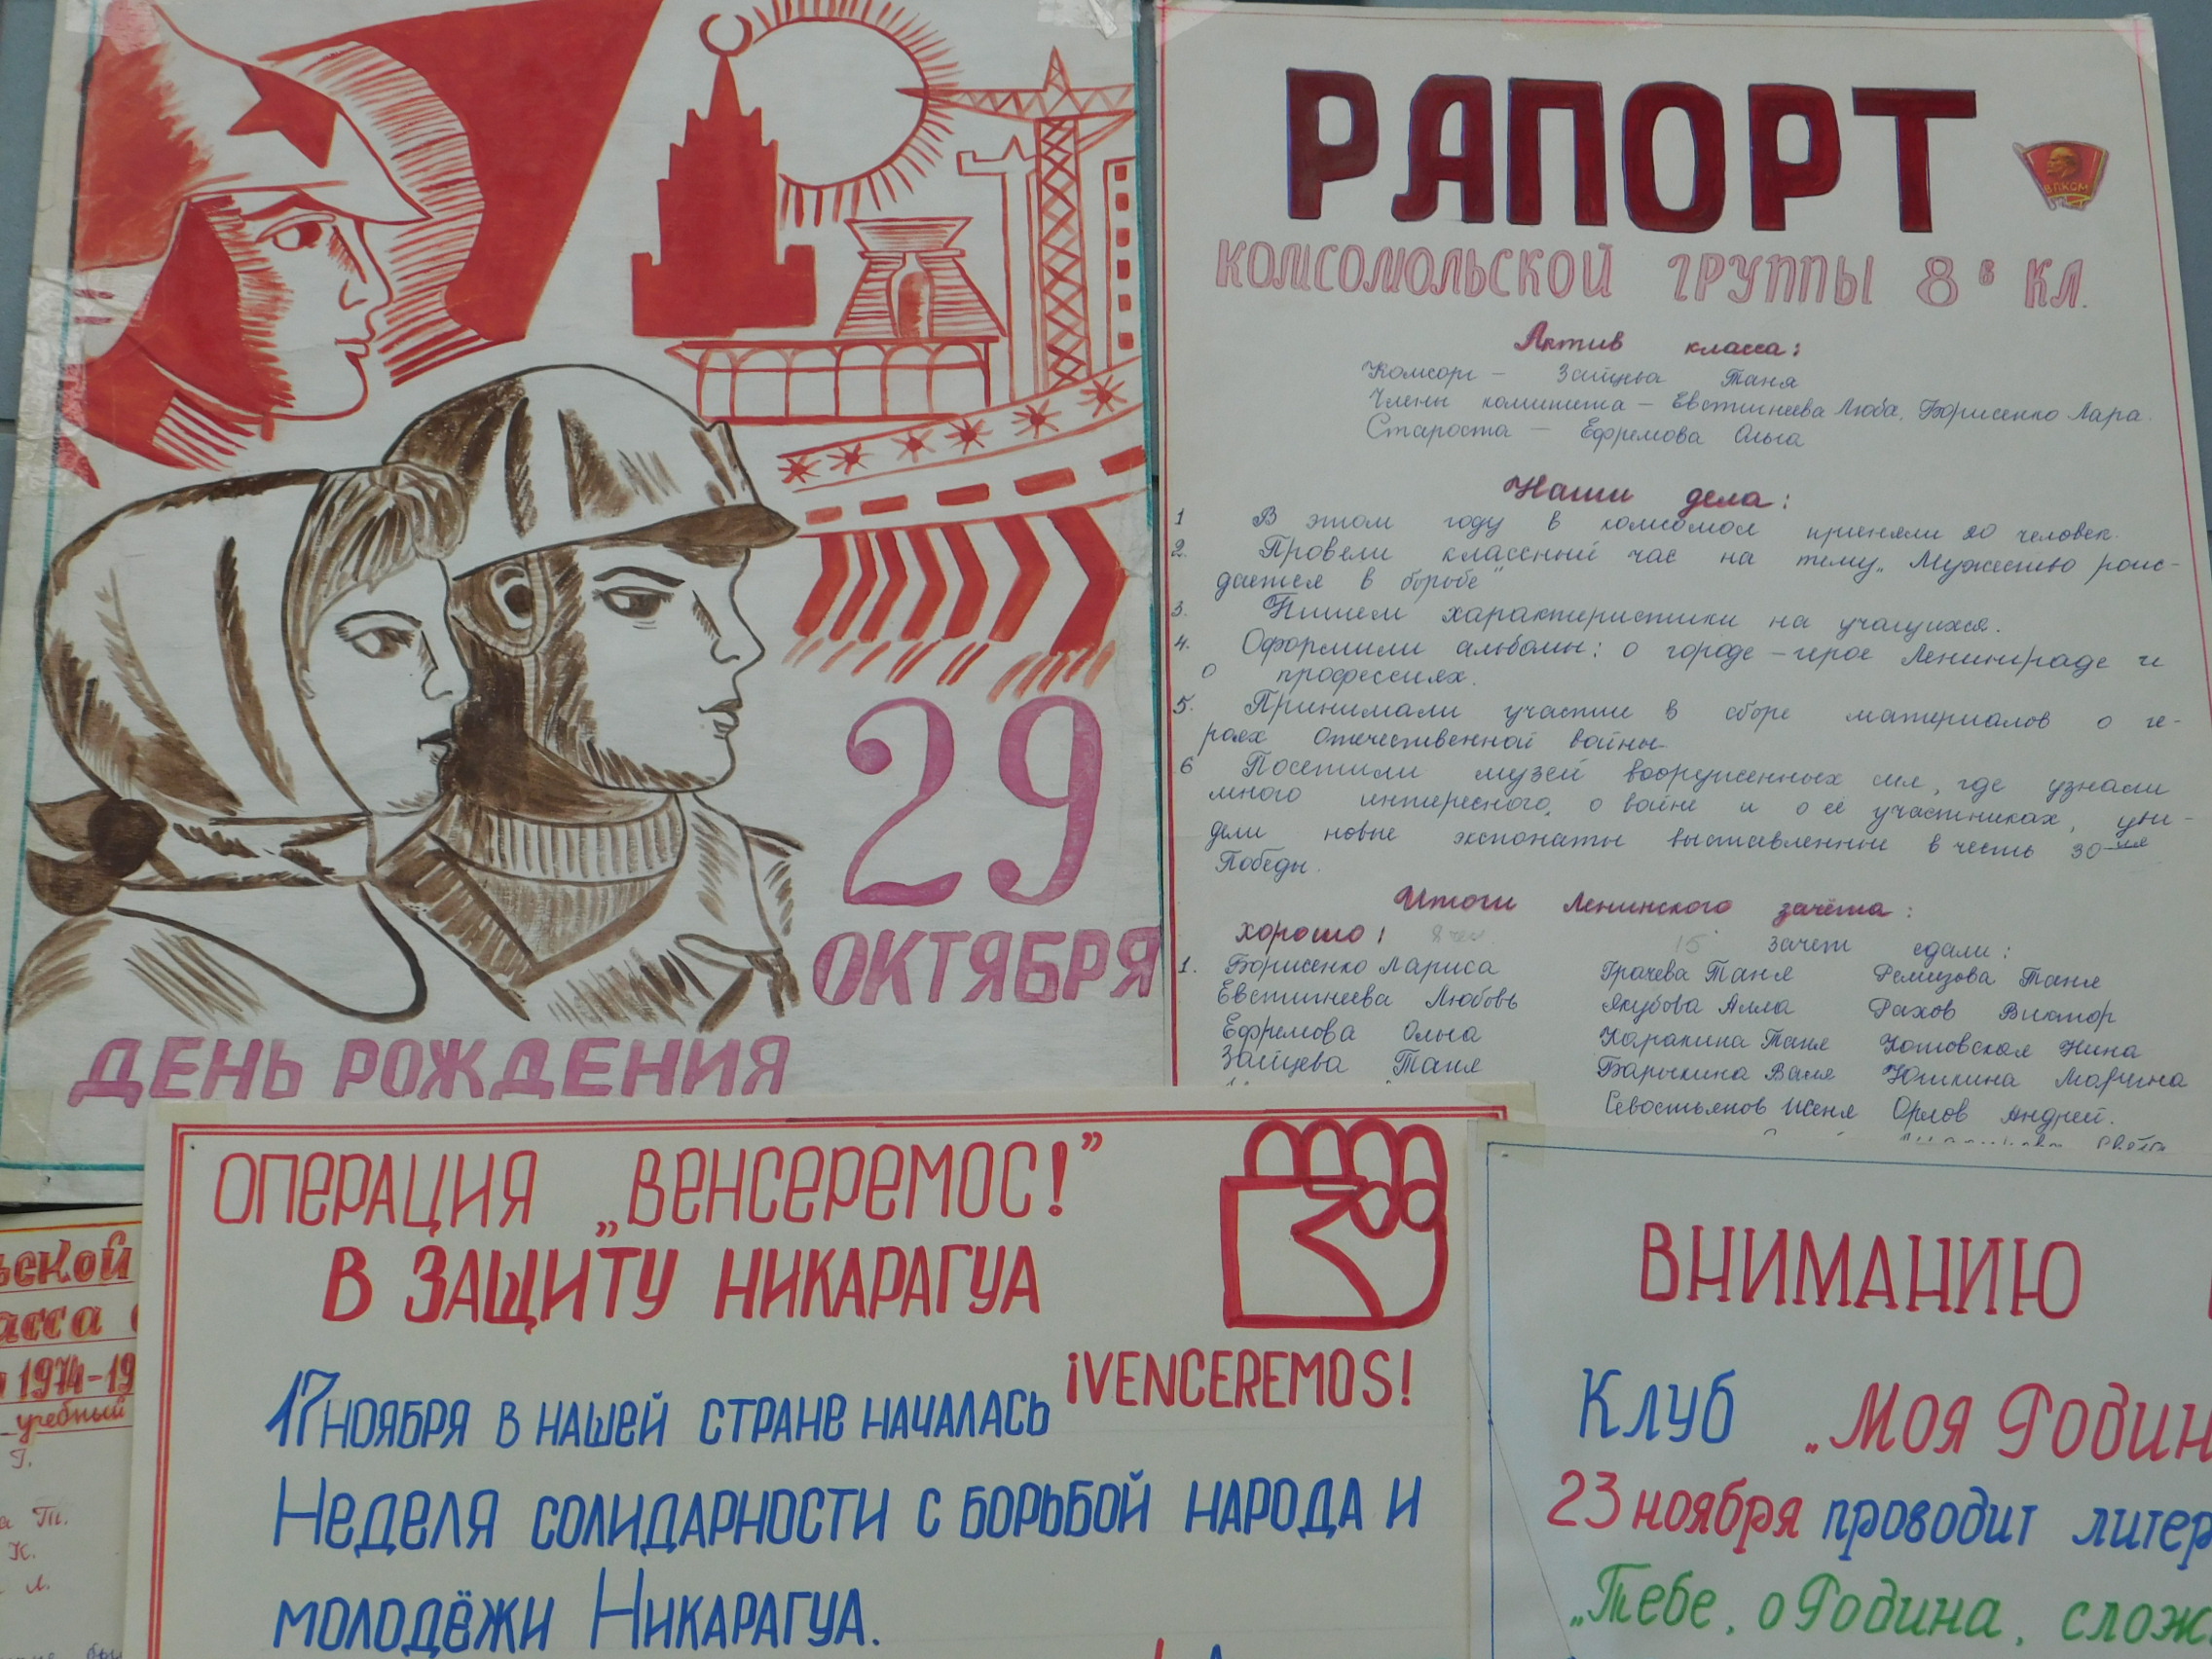 29
ОКТЯБРЯ
ДЕНЬ РОЖДЕНИЯ
РАПОРТ
ВЛКСМ
КОМСОМОЛЬСКОЙ ГРУППЫ 8 в КЛ.
Актив класса:
Комсорг – Зайцева Таня
Члены комитета – Евстигнеева Люба, Борисенко Лара.
Староста – Ефремова Ольга
Наши дела:
1 В этом году в комсомол приняли 20 человек.
2. Провели классный час на тему „Мужество рож-
дается в борьбе"
3. Пишем характеристики на учащихся.
4. Оформили альбомы: о городе – герое Ленинграде и
о профессиях.
5. Принимали участие в сборе материалов о ге-
роях Отечественной войны
6 Посетили музей вооруженных сил, где узнали
много интересного, о войне и о её участниках, уви-
дели новые экспонаты выставленные в честь 30-ия
Победы.
Итоги Ленинского зачёта:
хорошо: 8 чел. 15 зачет сдали:
1. Борисенко Лариса Грачева Таня Ремизова Таня
Евстигнеева Любовь Якубова Алла Рахов Виктор
Ефремова Ольга Каракина Таня Котовская Нина
Зайцева Таня Барыкина Валя Юшкина Марина
Севостьянов Женя Орлов Андрей.
ОПЕРАЦИЯ „ВЕНСЕРЕМОС!”
В ЗАЩИТУ НИКАРАГУА
¡VENCEREMOS!
17 НОЯБРЯ В НАШЕЙ СТРАНЕ НАЧАЛАСЬ
НЕДЕЛЯ СОЛИДАРНОСТИ С БОРЬБОЙ НАРОДА И
МОЛОДЁЖИ НИКАРАГУА.
ВНИМАНИЮ
Клуб „Моя Родин
23 ноября проводит литер
„Тебе, о Родина, слож
ьской
асса
1974-19
учебный
Г.
а Т.
К.
Л.